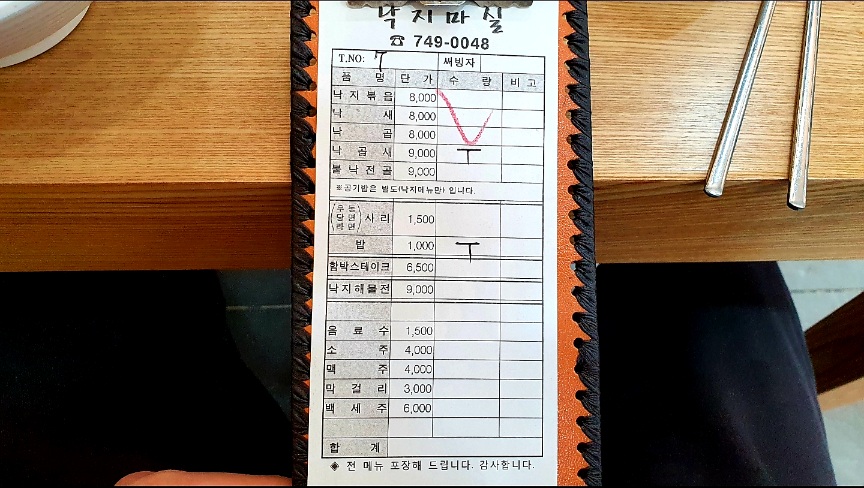 낙지마실
☎ 749-0048
T.NO: 7 써빙자
품 명 단 가 수 량 비 고
낙 지 볶 음 8,000
낙 새 8,000
낙 곱 8,000
낙 곱 새 9,000 ㅜ
불 낙 전 골 9,000
※공기밥은 별도(낙지메뉴만) 입니다.
(우 동 당 면 라 면) 사 리 1,500
밥 1,000 ㅜ
함박스테이크 6,500
낙지해물전 9,000
음 료 수 1,500
소 주 4,000
맥 주 4,000
막 걸 리 3,000
백 세 주 6,000
합 계
◈ 전 메뉴 포장해 드립니다. 감사합니다.